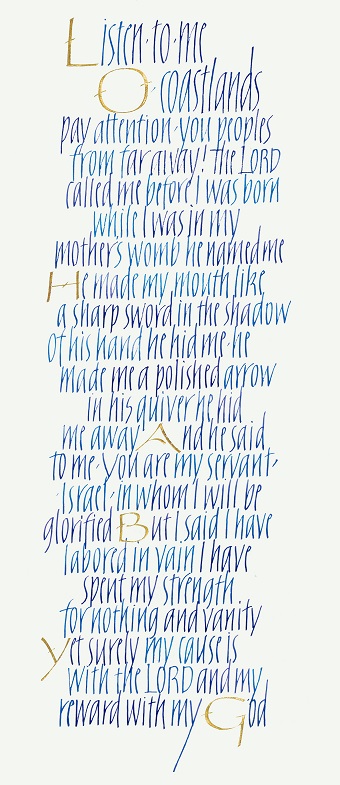 Listen·to·me
O·coastlands
pay attention·you peoples
from far away! the LORD
called me before I was born
while I was in my
mother's womb he named me
He made my mouth like
a sharp sword in the shadow
of his hand he hid me·he
made me a polished arrow
in his quiver he hid
me away And he said
to me·you are my servant,
Israel·in whom I will be
glorified But I said I have
labored in vain I have
spent my strength
for nothing and vanity
Yet surely my cause is
with the LORD and my
reward with my God